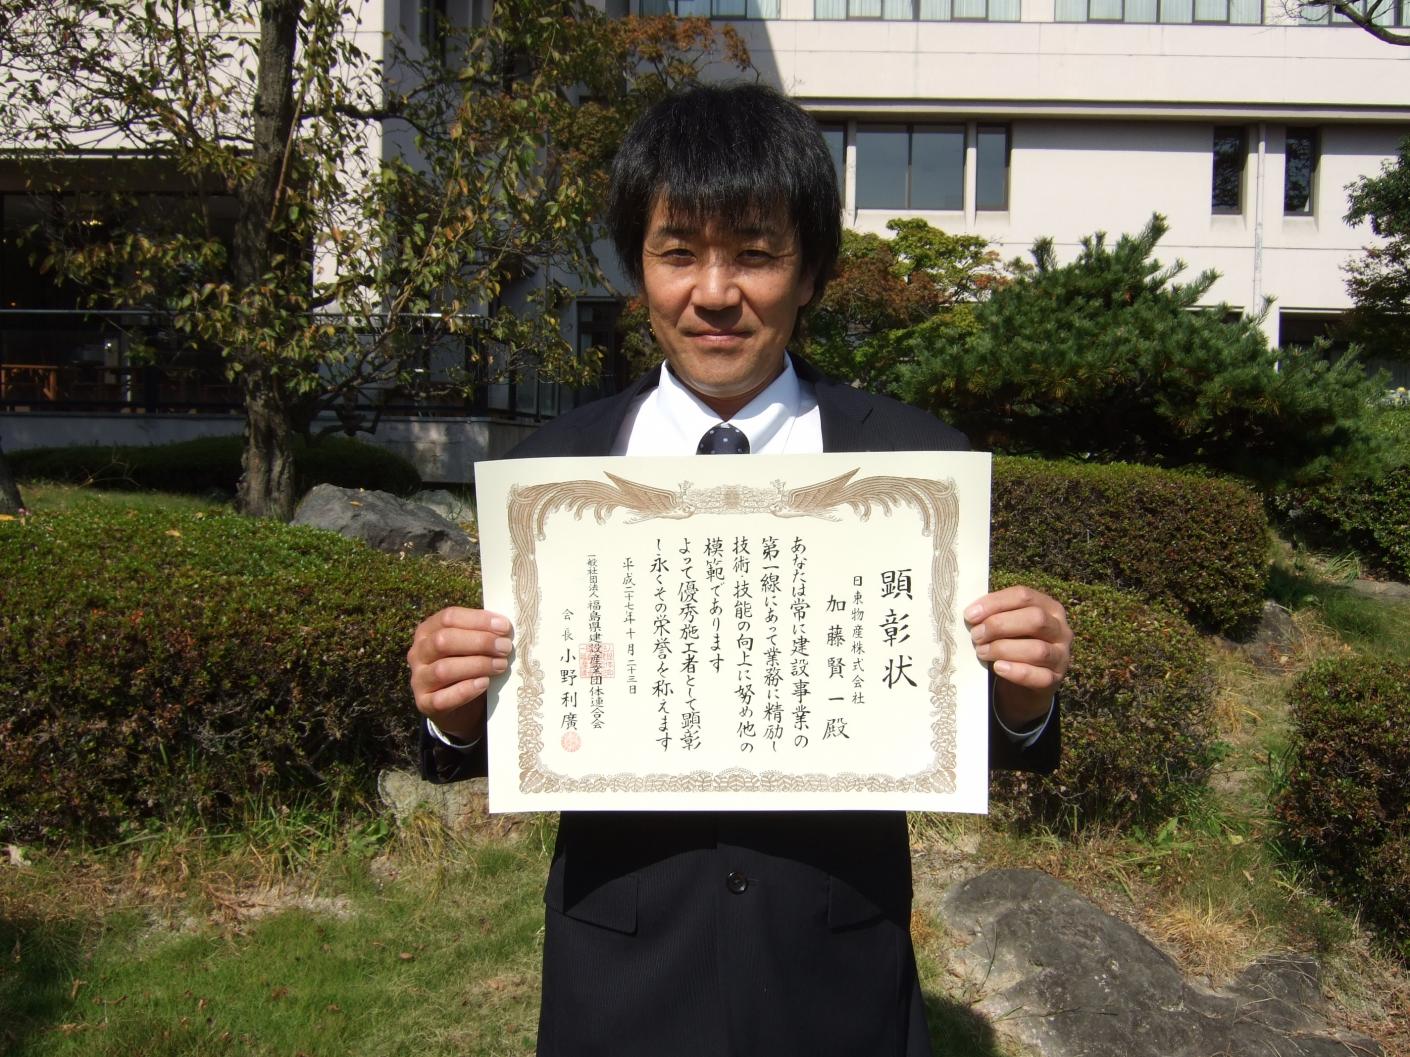 顕彰状
日東物産株式会社
加藤賢一殿
あなたは常に建設事業の
第一線にあって業務に精励し
技術・技能の向上に努め他の
模範であります
よって優秀施工者として顕彰
し永くその栄誉を称えます
平成二十七年十月二十三日
一般社団法人福島県建設産業団体連合会
会長小野利廣